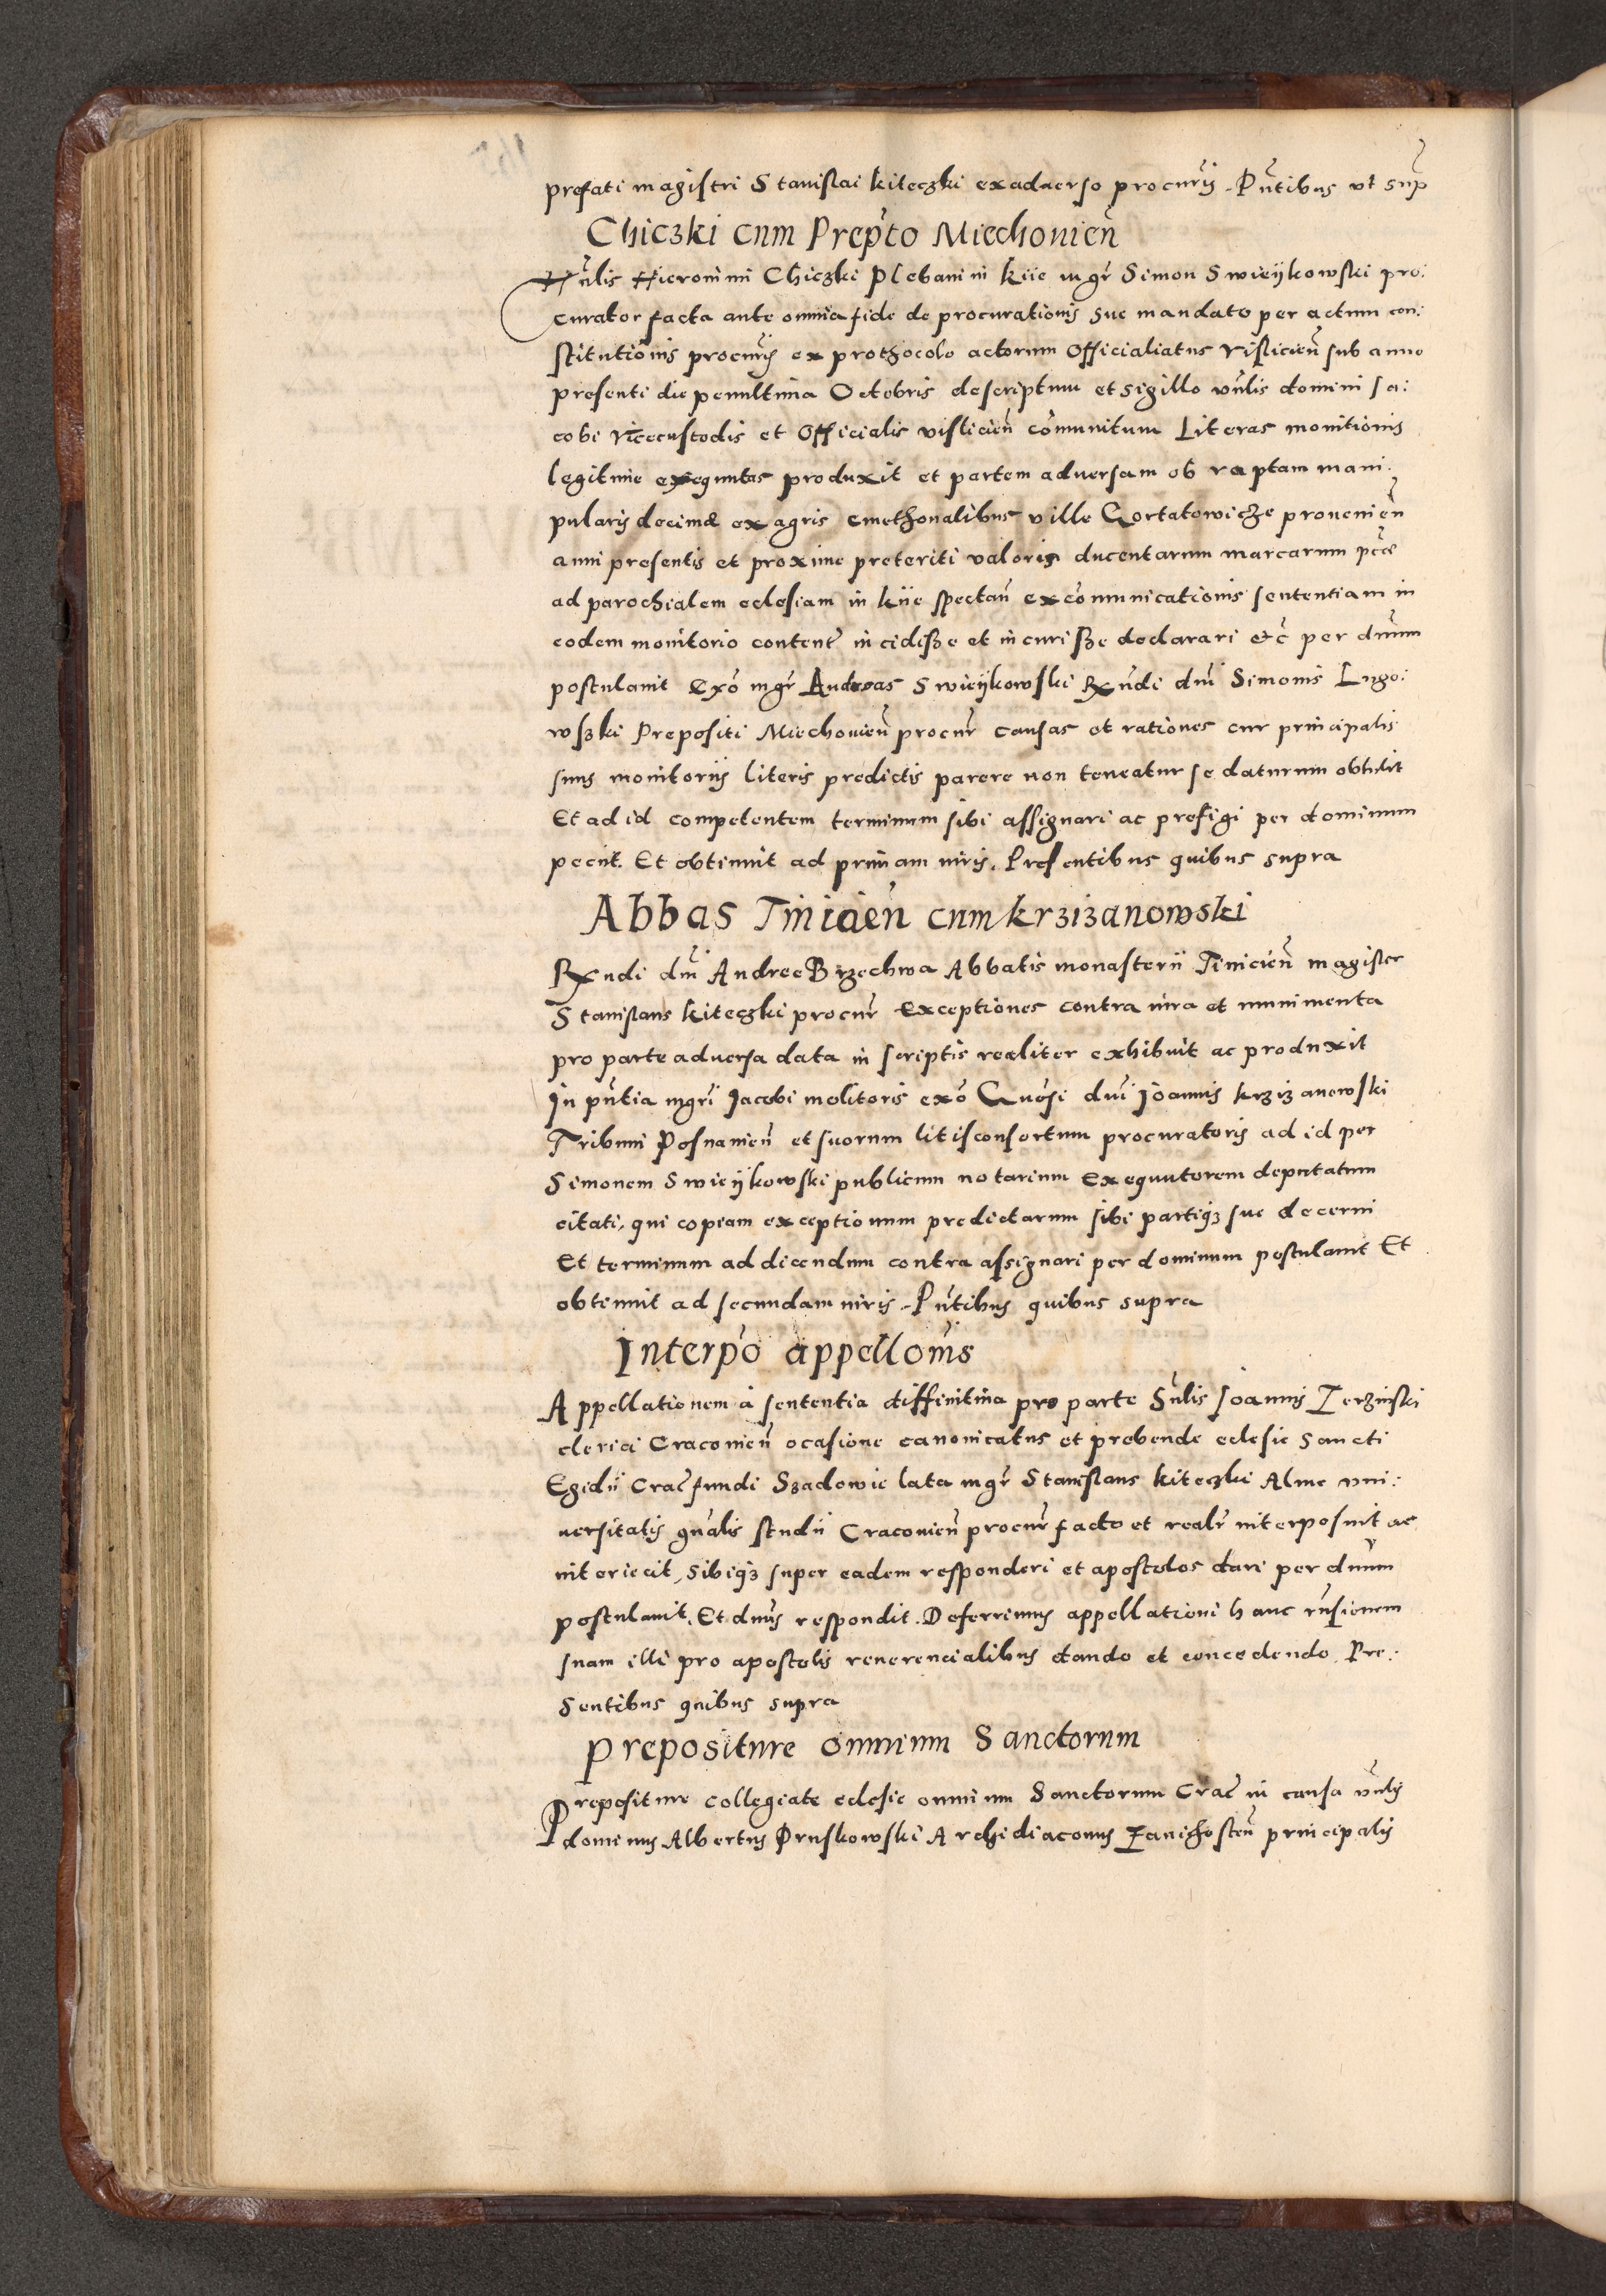 prefati magistri Stanislai kiteczki exadverso procur̃is. Pñtibus vt sup̃
Chiczki cum Prep̃to Miechovieñ
Hũlis Hieronimi Chiczki Plebani in kiie mgr̃ Simon Swieÿkowski pro:
curator facta ante omnia fide de procurationis sue mandato per actum con:
stitutionis procur̃is ex prothocolo actorum Officialiatus Vislicieñ sub anno
presenti die penultima Octobris descriptum et sigillo vñlis domini Ja:
cobi Vicecustodis et Officialis vislicieñ com̃unitum Literas monitionis
legitime exequutas produxit et partem adversam ob raptam mani:
pularis decimæ ex agris cmethonalibus ville Gortatowicze provenieñ
anni presentis et proxime preteriti valoris ducentarum marcarum pecu͂e
ad parochialem eclesiam in kiie spectañ excom̃unicationis sententiam in
eodem monitorio conteñt incidisse et incurisse declarari etc̃ per dñum
postulavit Exõ mgr̃ Andreas Swieÿkowski Rx̃ndi dñi Simonis Lugo:
wszki Prepositi Miechovieñ procur̃ causas et rationes cur principalis
suus monitoriis literis predictis parere non teneatur se daturum obtulit
Et ad id competentem terminum sibi assignari ac prefigi per dominum
peciit. Et obtinuit ad primam iuris. Presentibus quibus supra
Abbas Tinicieñ cum krzizanowski
Rx̃ndi dñi Andree Brzechwa Abbatis monasterii Tinicieñ magister
Stanislaus kiteczki procur̃ Exceptiones contra iura et munimenta
pro parte adversa data in scriptis realiter exhibuit ac produxit
In pñtia mgr̃i Jacobi molitoris exõ Gñosi dñi Joannis krzizanowski
Tribuni Posnanieñ et suorum litisconsortum procuratoris ad id per
Simonem Swieÿkowski publicum notarium Exequutorem deputatum
citati, qui copiam exceptionum predictarum sibi partiqȝ sue decerni
Et terminum ad dicendum contra assignari per dominum postulavit Et
obtinuit ad secundam iuris. Pñtibus quibus supra
Interpõ appellõnis
Appellationem à sententia diffinitiva pro parte Sñlis Joannis Jerzinski
clerici Cracovieñ ocasione canonicatus et prebende eclesie Sancti
Egidii Crac̃ fundi Szadowie lata mgr̃ Stanislaus kiteczki Alme vni:
versitatis gñalis studii Cracovieñ procur̃ facto et realr̃ interposuit ac
interiecit, sibiqȝ super eadem responderi et apostolos dari per dñum
postulavit. Et dñus respondit. Deferrimus appellationi hanc rñsionem
suam illi pro apostolis reverencialibus dando et concedendo. Pre:
sentibus quibus supra
Prepositure omnium Sanctorum
Prepositure collegiate eclesie omnium Sanctorum Crac̃ in causa vñlis
dominus Albertus Pruskowski Archidiaconus Zavichosteñ principalis